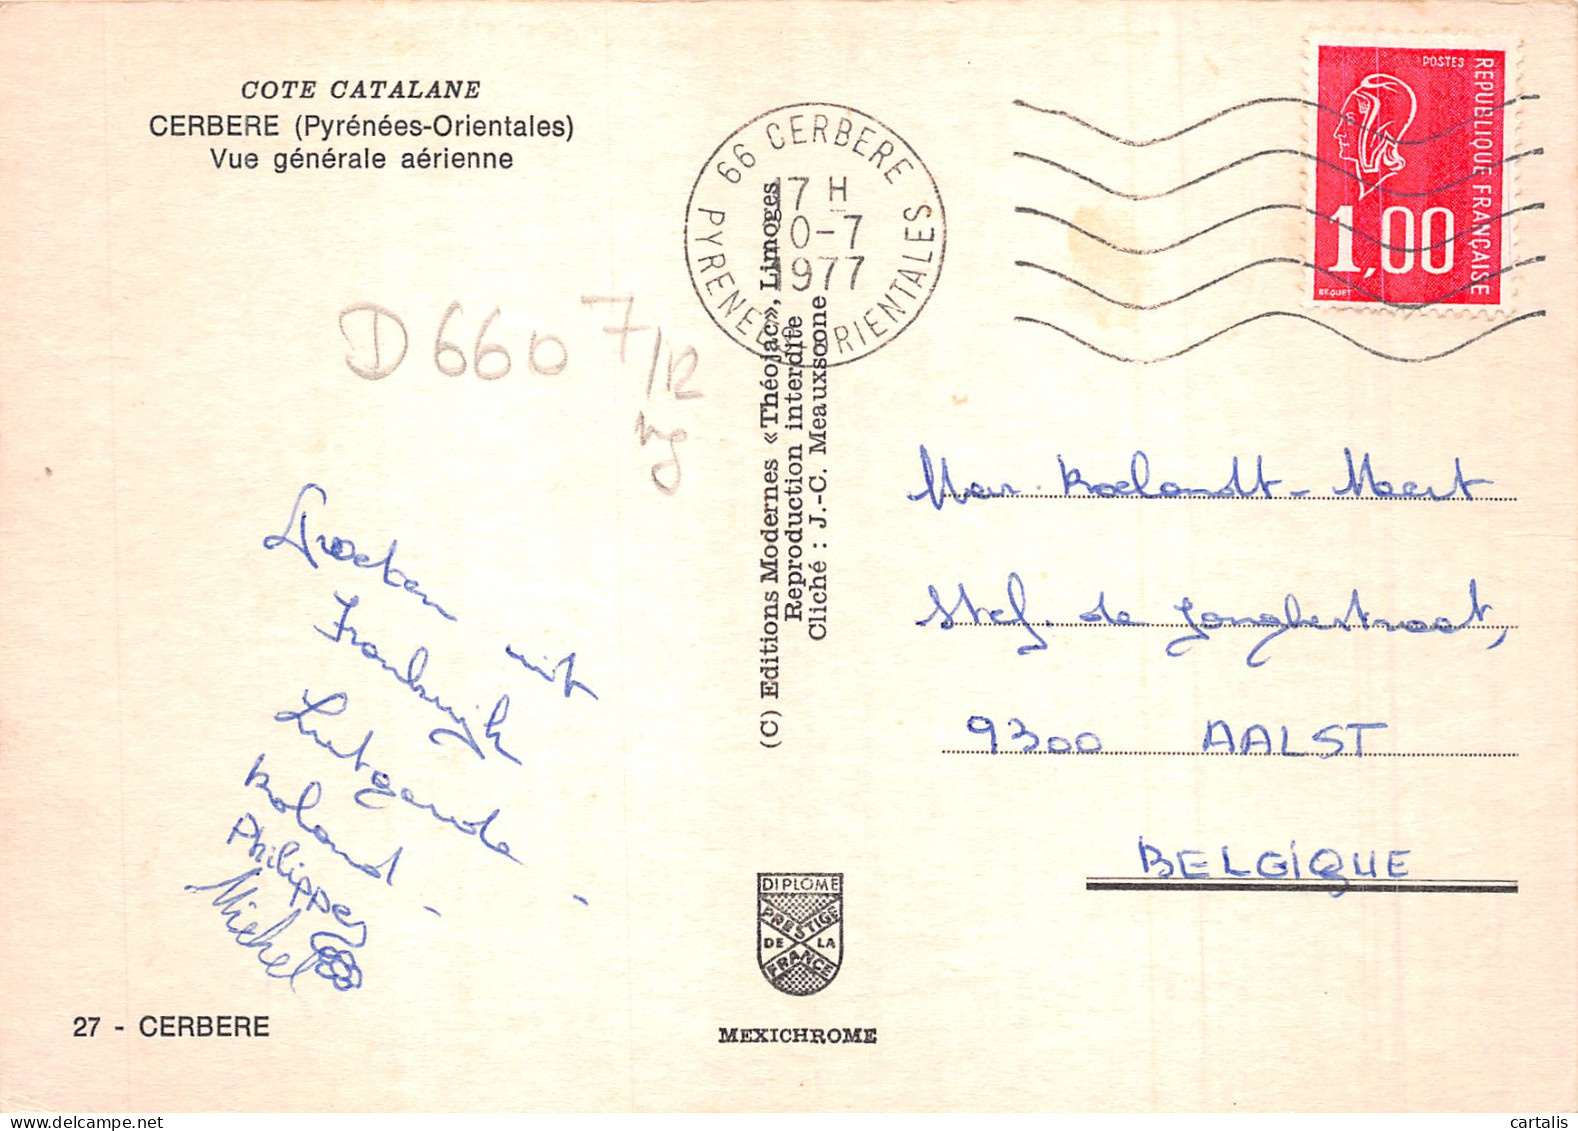 COTE CATALANE
CERBERE (Pyrénées-Orientales)
Vue générale aérienne
66 CERBERE
17 H
10-7
1977
PYRENEES ORIENTALES
POSTES
REPUBLIQUE FRANÇAISE
1,00
BEQUET
D 660 7/12
vg
Groeten uit
Frankrijk
Lutgarde -
Roland -
Philippe
Michel
(C) Editions Modernes «Théojac», Limoges
Reproduction interdite
Cliché : J.-C. Meauxsoone
Mar. Roelandt - Meert
Stef. de Jonghestraat,
9300 AALST
BELGIQUE
DIPLOME
PRESTIGE
DE LA
FRANCE
27 - CERBERE
MEXICHROME
cartalis